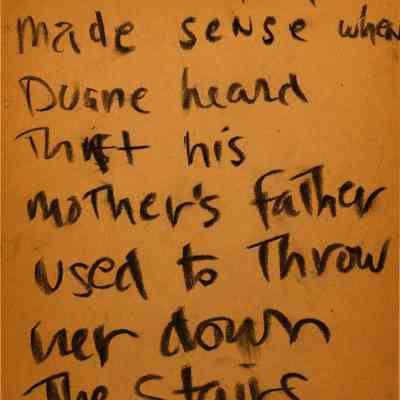 made sense when
Duane heard
That his
mother's father
used to Throw
her down
The Stairs